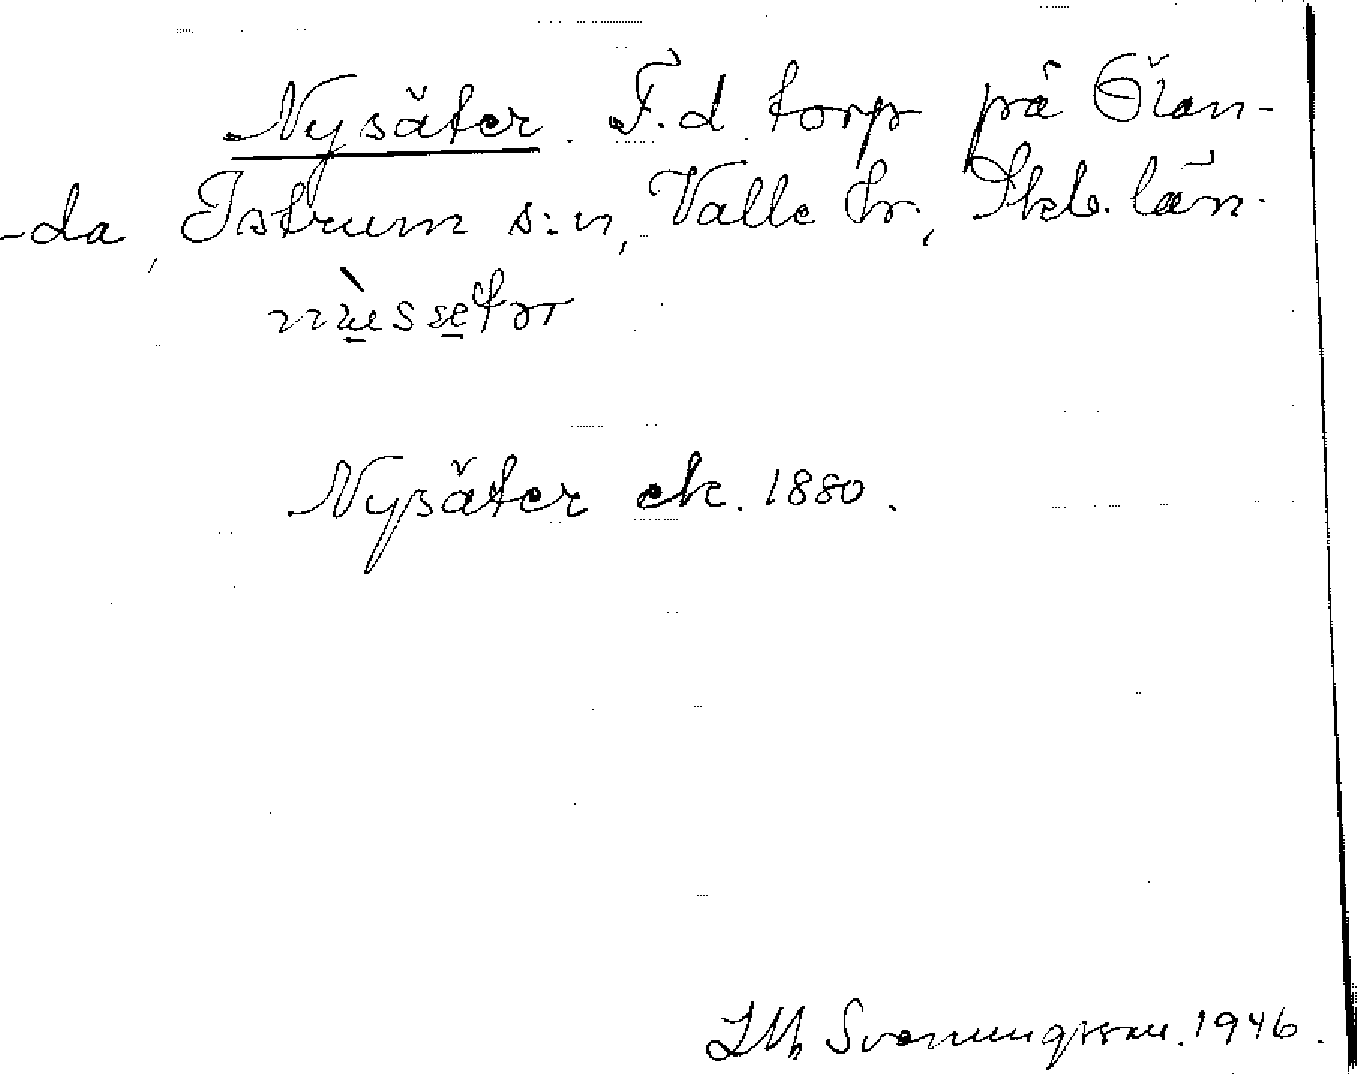 Nysäter. F.d. torp på Ölan-
-da, Istrum s:n, Valle hr., Skb. län.
Nysäter ek. 1880.
Svenungsson. 1946.